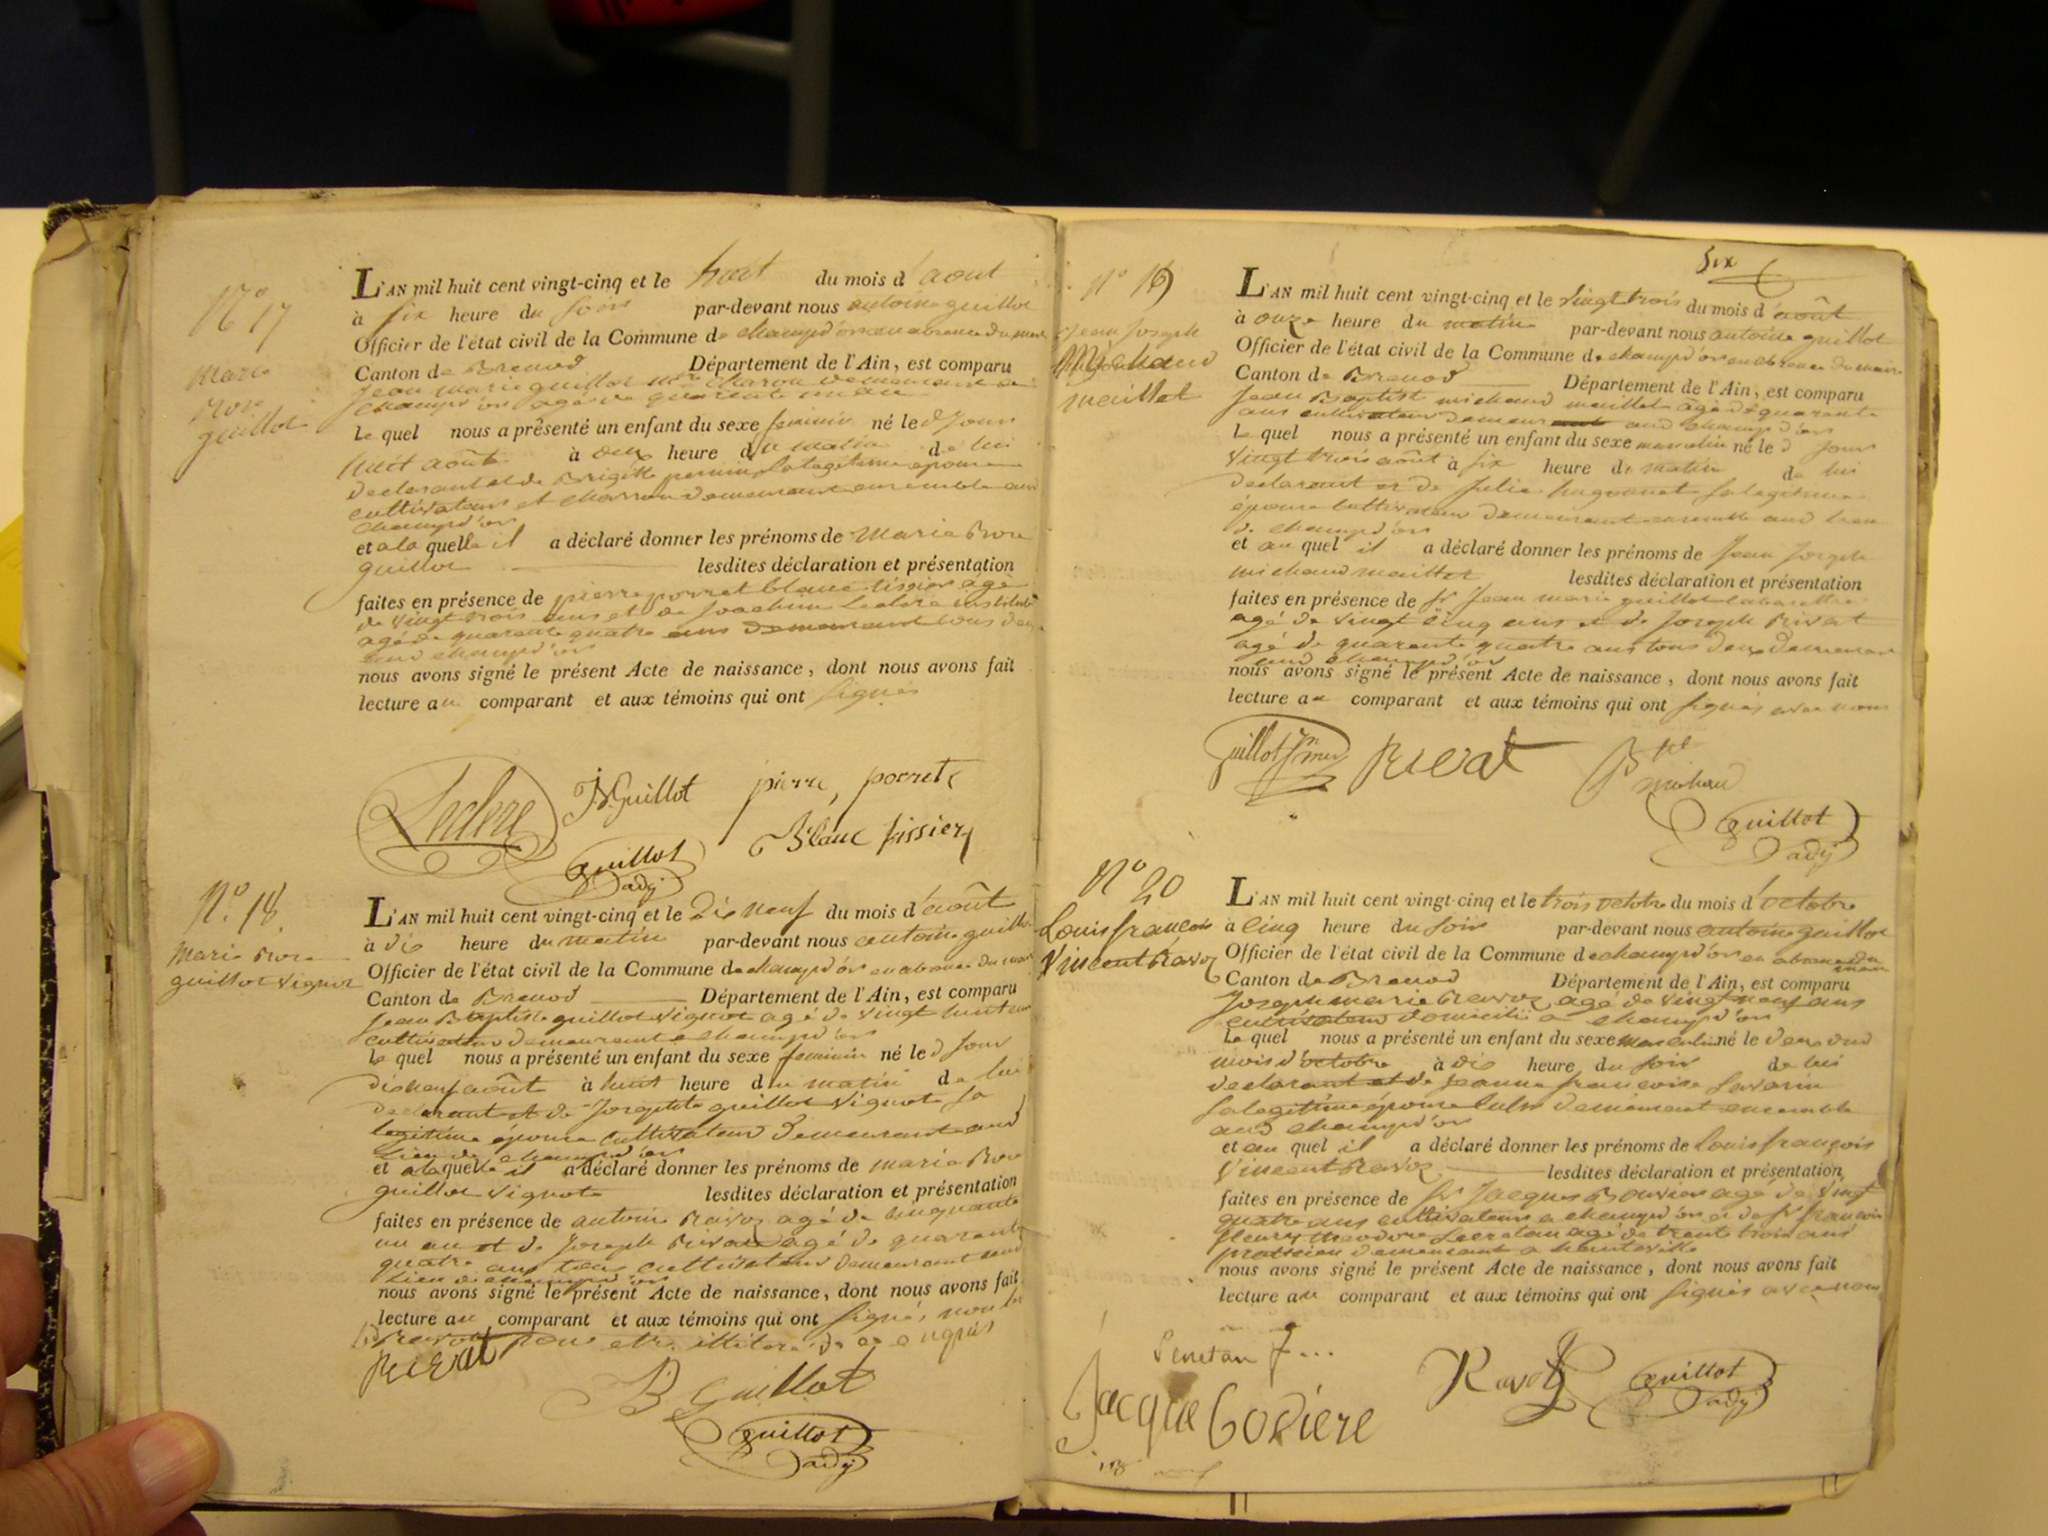 N° 17
Marie
Rose
guillot
L'AN mil huit cent vingt-cinq et le huit du mois d'août
à six heure du soir par-devant nous antoine guillot
Officier de l'état civil de la Commune de champd'or en absence du maire
Canton de Brenod Département de l'Ain, est comparu
Jean marie guillot charon demeurant a
champd'or agé de quarente un an
Le quel nous a présenté un enfant du sexe feminin né le d jour
huit août à deux heure du matin de lui
declarant et de Brigitte sa legitime épouse
cultivateurs et charron demeurant ensemble aud
champd'or
et a la quelle il a déclaré donner les prénoms de Marie Rose
guillot lesdites déclaration et présentation
faites en présence de pierre porret blanc tissier agé
de vingt trois ans et de Joachim Leclere
agé de quarente quatre ans demeurant tous deux
aud champd'or
nous avons signé le présent Acte de naissance, dont nous avons fait
lecture au comparant et aux témoins qui ont signés
Leclere JGuillot pierre porret
Blanc tissier
Guillot
adj
N° 18
Marie Rose
guillot Vignot
L'AN mil huit cent vingt-cinq et le Dix neuf du mois d'août
à dix heure du matin par-devant nous antoine guillot
Officier de l'état civil de la Commune de champd'or en absence du maire
Canton de Brenod Département de l'Ain, est comparu
Jean Baptiste guillot Vignot agé de vingt huit ans
cultivateur demeurant a champd'or
Le quel nous a présenté un enfant du sexe feminin né le d jour
dix neuf août à huit heure du matin de lui
declarant et de Josephte guillot Vignot sa
legitime épouse cultivateurs demeurant aud
Lieu de champd'or
et a la quelle il a déclaré donner les prénoms de marie Rose
guillot Vignot lesdites déclaration et présentation
faites en présence de antoine Ravoz agé de cinquante
un an et de Joseph Rivat agé de quarente
quatre ans tous cultivateurs demeurant aud
Lieu de champd'or
nous avons signé le présent Acte de naissance, dont nous avons fait
lecture au comparant et aux témoins qui ont signés non led
Ravoz pour etre illiteré de ce enquis
Rivat
B Guillot
Guillot
adj
Six
N° 19
Jean Joseph
Michaud
Maillet
L'AN mil huit cent vingt-cinq et le vingt trois du mois d'août
à onze heure du matin par-devant nous antoine guillot
Officier de l'état civil de la Commune de champd'or en absence du maire
Canton de Brenod Département de l'Ain, est comparu
Jean Baptiste michaud maillet agé de quarante
ans cultivateur demeurant aud champd'or
Le quel nous a présenté un enfant du sexe masculin né le d jour
vingt trois août à six heure du matin de lui
declarant et de Julie sa legitime
épouse cultivateurs demeurant ensemble aud lieu
de champd'or
et au quel il a déclaré donner les prénoms de Jean Joseph
michaud maillet lesdites déclaration et présentation
faites en présence de Sr Jean marie guillot
agé de vingt cinq ans et de Joseph Rivat
agé de quarante quatre ans tous deux demeurant
aud champd'or
nous avons signé le présent Acte de naissance, dont nous avons fait
lecture au comparant et aux témoins qui ont signés avec nous
Guillot Rivat Bte
michau
Guillot
adj
N° 20
Louis françois
Vincent Ravoz
L'AN mil huit cent vingt-cinq et le trois octobre du mois d'octobre
à cinq heure du soir par-devant nous antoine guillot
Officier de l'état civil de la Commune de champd'or en absence du maire
Canton de Brenod Département de l'Ain, est comparu
Joseph marie Ravoz agé de vingt neuf ans
cultivateur domicilié a champd'or
Le quel nous a présenté un enfant du sexe masculin né le deux dud
mois d'octobre à dix heure du soir de lui
declarant et de Jeanne françoise Savarin
sa legitime épouse cultrs demeurant ensemble
aud champd'or
et au quel il a déclaré donner les prénoms de Louis françois
Vincent Ravoz lesdites déclaration et présentation
faites en présence de Sr Jacques agé de vingt
quatre ans cultivateur a champd'or et de Sr françois
fleury theodore Secretan agé de trente trois ans
praticien demeurant a hauteville
nous avons signé le présent Acte de naissance, dont nous avons fait
lecture au comparant et aux témoins qui ont signés avec nous
Ravoz Guillot
adj
Jacque